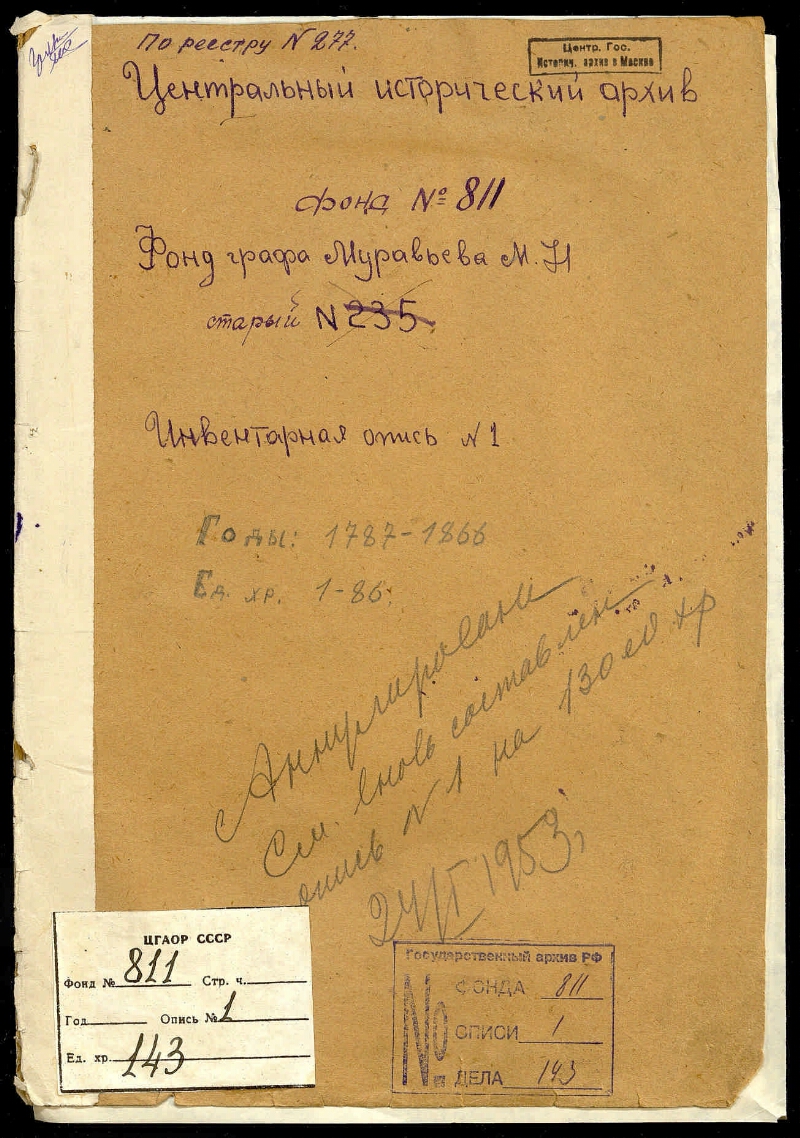 По реестру N 277.
Центр. Гос.
Историч. архив в Москве
Центральный исторический архив
Фонд № 811
Фонд графа Муравьева М. Н
старый N 235.
Инвентарная опись N 1
Годы: 1787-1866
Ед. хр. 1-86.
Аннулирована
См. вновь составлен
опись N 1 на 130 ед хр
24/VI 1953г
ЦГАОР СССР
Фонд № 811 Стр. ч.
Год Опись № 1
Ед. хр. 143
Государственный архив РФ
№ ФОНДА 811
ОПИСИ 1
ДЕЛА 143